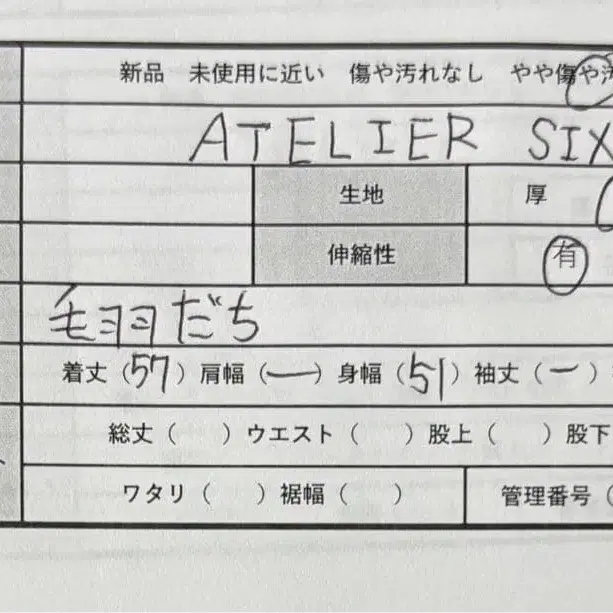 新品 未使用に近い 傷や汚れなし やや傷や汚
ATELIER SIX
生地 厚
伸縮性 有
毛羽だち
着丈（57）肩幅（ー）身幅（51）袖丈（ー）
総丈（ ）ウエスト（ ）股上（ ）股下
ワタリ（ ）裾幅（ ） 管理番号（